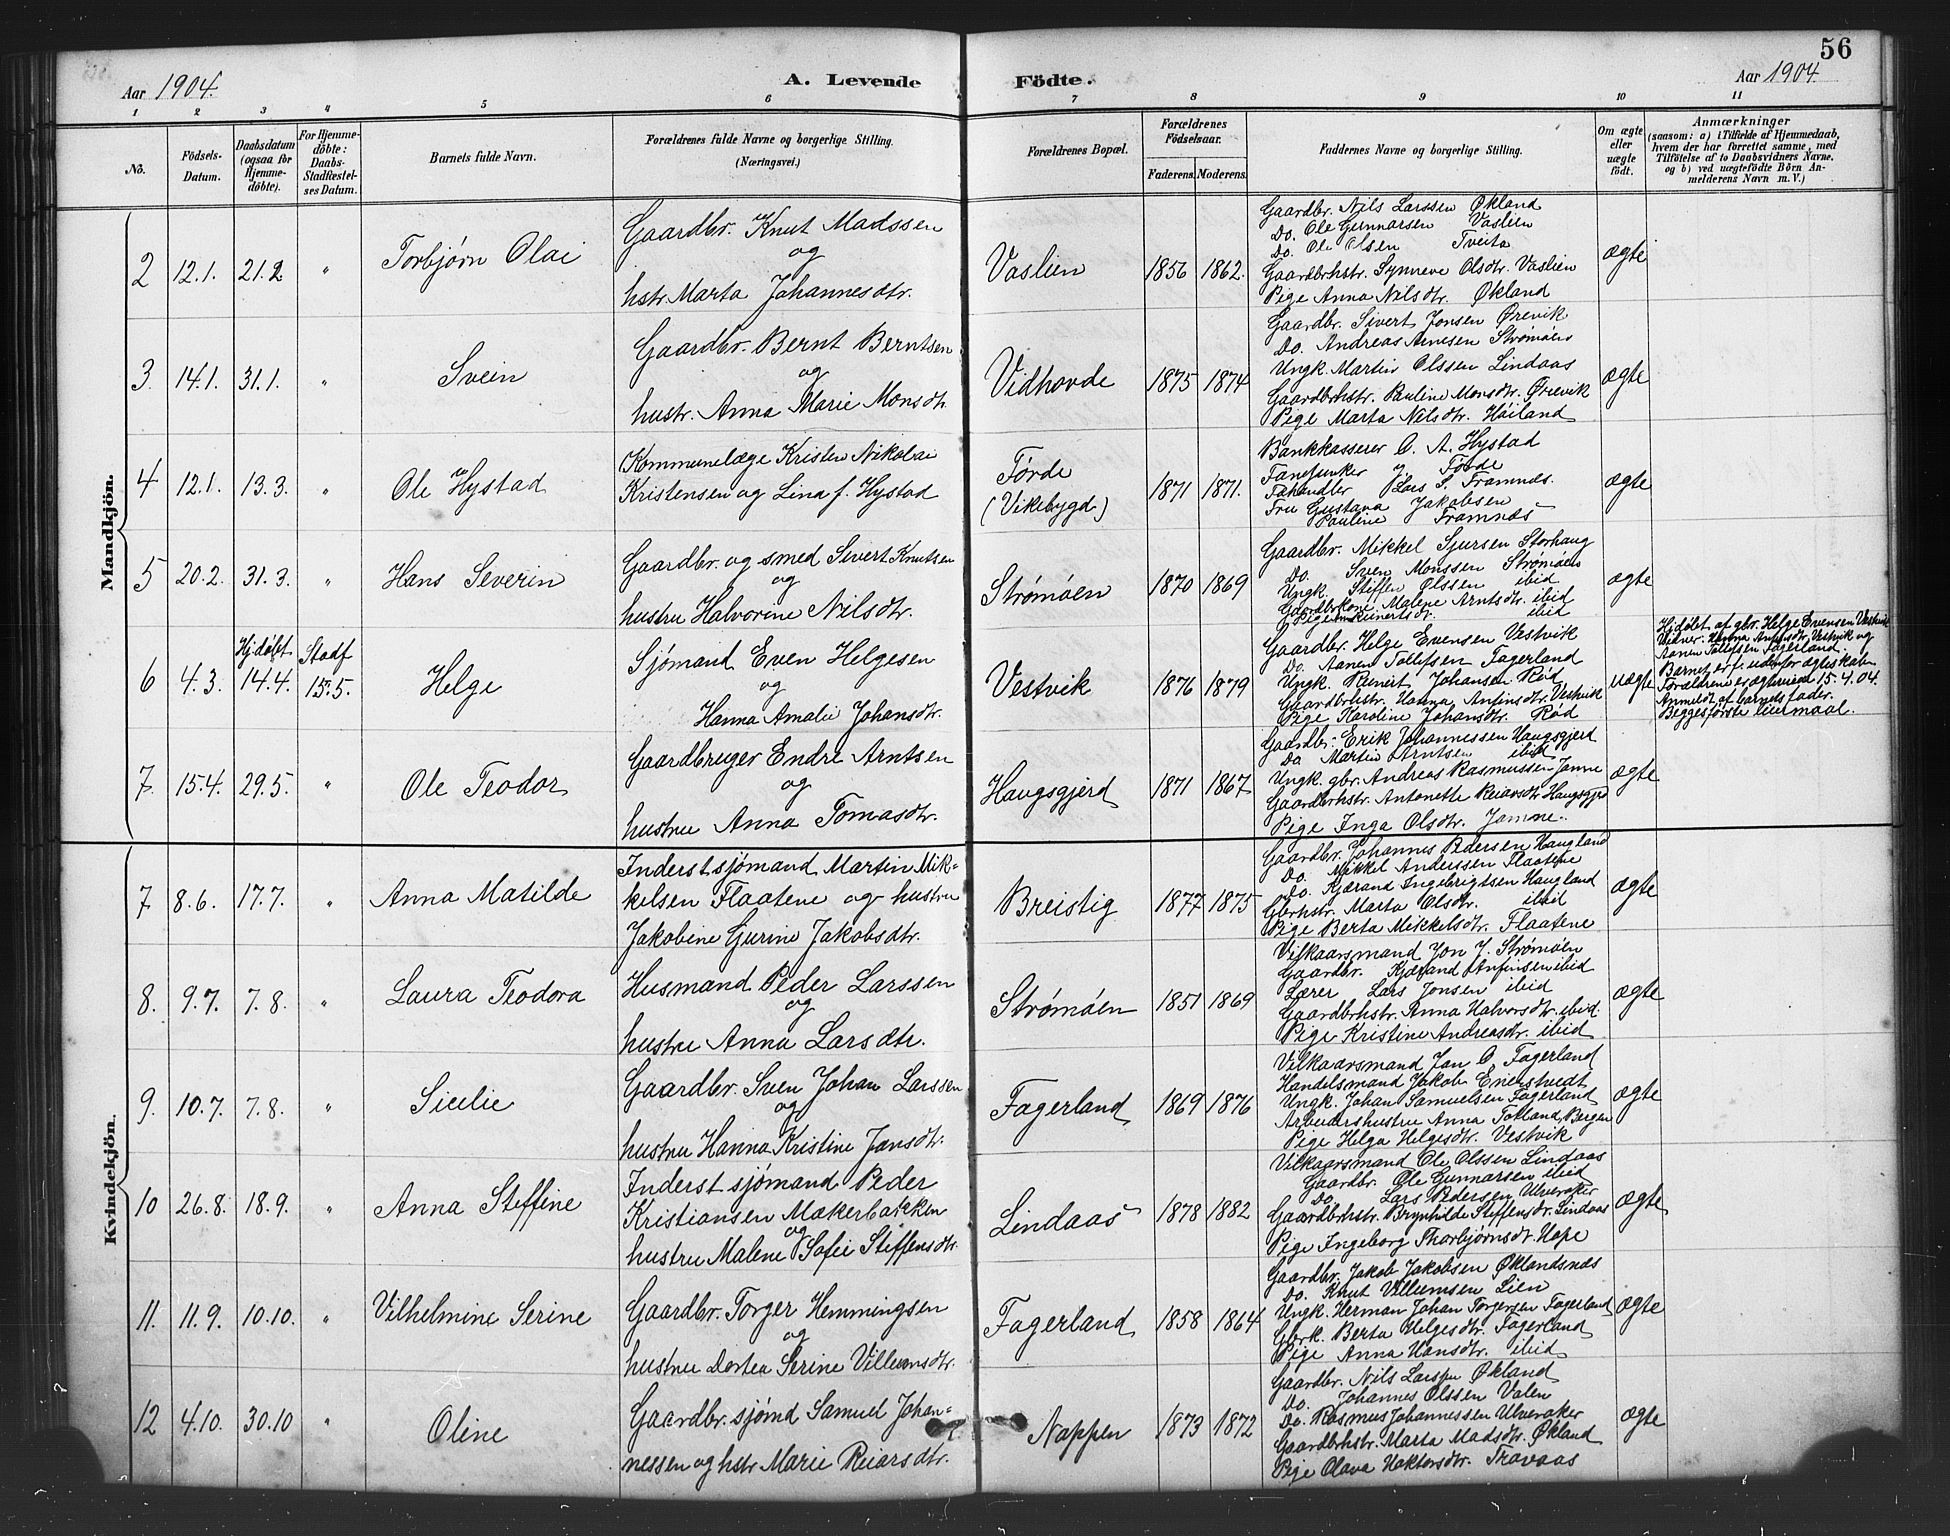 56
Aar 1904. A. Levende Födte. Aar 1904
1 2 3 4 5 6 7 8 9 10 11
No.
Födsels-Datum.
Daabsdatum (ogsaa for Hjemme-döbte).
For Hjemme-döbte: Daabs-Stadfæstel-ses Datum.
Barnets fulde Navn.
Forældrenes fulde Navne og borgerlige Stilling.
(Næringsvei.)
Forældrenes Bopæl.
Forældrenes Födselsaar.
Faderens. Moderens.
Faddernes Navne og borgerlige Stilling.
Om ægte eller uægte födt.
Anmærkninger
(saasom: a) i Tilfælde af Hjemmedaab,
hvem der har forrettet samme, med
Tilföielse af to Daabsvidners Navne,
og b) ved uægtefödte Börn An-
melderens Navn m. V.)
Mandkjön.
2 12.1. 21.2. " Torbjørn Olai
Gaardbr. Knut Madssen
og
hstr. Marta Johannesdtr.
Vaslien 1856 1862.
Gaardbr. Nils Larssen Økland
Do. Ole Gunnarsen Vaslien
Do. Ole Olsen Tveita
Gaardbrhstr. Synneve Olsdtr. Vaslien
Pige Anna Nilsdtr. Økland
ægte
3. 14.1. 31.1. " Svein
Gaardbr. Bernt Berntsen
og
hustr. Anna Marie Monsdtr.
Vidhovde 1875 1874
Gaardbr. Sivert Jonsen Ørevik
Do. Andreas Arnesen Strømøen
Ungk. Martin Olssen Lindaas
Gaardbrhstr. Pauline Monsdtr. Ørevik
Pige Marta Nilsdtr. Høiland
ægte
4 12.1. 13.3. " Ole Hystad
Kommunelæge Kristen Nikolai
Kristensen og Lina f. Hystad
Førde
(Vikebygd)
1871 1871.
Bankkasserer O. A. Hystad
Førde
Fahandler Lars S. Framnæs.
Fru Gustava Jakobsen
Pauline Framnæs
ægte
5 20.2. 31.3. " Hans Severin
Gaardbr. og smed Sivert Knutsen
og
hustru Halvorine Nilsdtr.
Strømøen 1870 1869
Gaardbr. Mikkel Sjursen Storhaug
Do. Sven Monssen Strømøen
Ungk. Steffen Olssen ibid
Gaardbrkone Malene Arntsdtr. ibid
Pige ibid
ægte
6 4.3. Hjdøbt 14.4. Stadf 15.5. Helge
Sjømand Even Helgesen
og
Hanna Amalie Johansdtr.
Vestvik 1876 1879
Gaardbr. Helge Evensen Vestvik
Do. Aanen Tollefsen Fagerland
Ungk. Reinert Johansen Rød
Gaardbrhstr. Hanna Anfinsdtr. Vestvik
Pige Karoline Johansdtr. Rød
uægte
Hjdøbt af gbr. Helge Evensen Vestvik
Vidner: Hanna Anfinsdtr. Vestvik og
Aanen Tollefsen Fagerland.
Barnet er f. udenfor ægteskab.
Forældrene er ægteviede 15.4.04.
Anmeldt af barnets fader.
Begges første leiermaal.
7. 15.4. 29.5. " Ole Teodor
Gaardbruger Endre Arntsen
og
hustru Anna Tomasdtr.
Haugsgjerd 1871 1867
Gaardbr. Erik Johannessen Haugsgjerd
Do Martin Arntsen ibid
Ungk. gbr. Andreas Rasmussen Jamne
Gaardbrhstr. Antonette Reiarsdtr. Haugsgjerd
Pige Inga Olsdtr. Jamne.
ægte
Kvindekjön.
7. 8.6. 17.7. " Anna Matilde
Inderst sjømand Martin Mik-
kelsen Flaatene og hustru
Jakobine Gurine Jakobsdtr.
Breistig 1877 1875
Gaardbr. Johannes Pedersen Haugland
Do. Mikkel Anderssen Flaatene
Do. Kjærand Ingebrigtsen Haugland
Gbrhstr. Marta Olsdtr. ibid
Pige Berta Mikkelsdtr. Flaatene
ægte
8. 9.7. 7.8. " Laura Teodora
Husmand Peder Larssen
og
hustru Anna Larsdtr.
Strømøen 1851 1869
Vilkaarsmand Jon J. Strømøen
Gaardbr. Kjærand Anfinsen ibid
Lærer Lars Jonsen ibid
Gaardbrhstr. Anna Halvorsdtr. ibid.
Pige Kristine Andreasdtr. ibid
ægte
9. 10.7. 7.8. " Sicilie
Gaardbr. Sven Johan Larssen
og
hustru Hanna Kristine Jansdtr.
Fagerland 1869 1876
Vilkaarsmand Jan O. Fagerland
Handelsmand Jakob Enerstvedt
Ungk. Johan Samuelsen Fagerland
Arbeidershustru Anna Totland, Bergen
Pige Helga Helgesdtr. Vestvik
ægte
10 26.8. 18.9. " Anna Steffine
Inderst sjømand Peder
Kristiansen Mækerbakken
og
hustru Malene Sofie Steffensdtr.
Lindaas 1878 1882
Vilkaarsmand Ole Olssen Lindaas
Gaardbr. Ole Gunnarsen ibid
Do Lars Pedersen Ulveraker
Gaardbrhstr. Brynhilde Steffensdtr. Lindaas
Pige Ingeborg Thorbjørnsdtr. Hope
ægte
11. 11.9. 10.10. " Vilhelmine Serine
Gaardbr. Torger Hemmingsen
og
hustru Dortea Serine Villumsdtr.
Fagerland 1858 1864
Gaardbr. Jakob Jakobsen Øklandsnæs
Do. Knut Villumsen Lien
Ungk. Herman Johan Torgersen Fagerland
Gbrk. Berta Helgesdtr. Fagerland
Pige Anna Hansdtr. ibid
ægte
12 4.10. 30.10 " Oline
Gaardbr. sjømd Samuel Johan-
nessen og hstr. Marie Reiarsdtr.
Nappen 1873 1872
Gaardbr. Nils Larsen Økland
Do. Johannes Olssen Valen
Do. Rasmus Johannessen Ulveraker
Gaardbrhstr. Marta Madsdtr. Økland
Pige Olava Haktorsdtr. Travaas
ægte